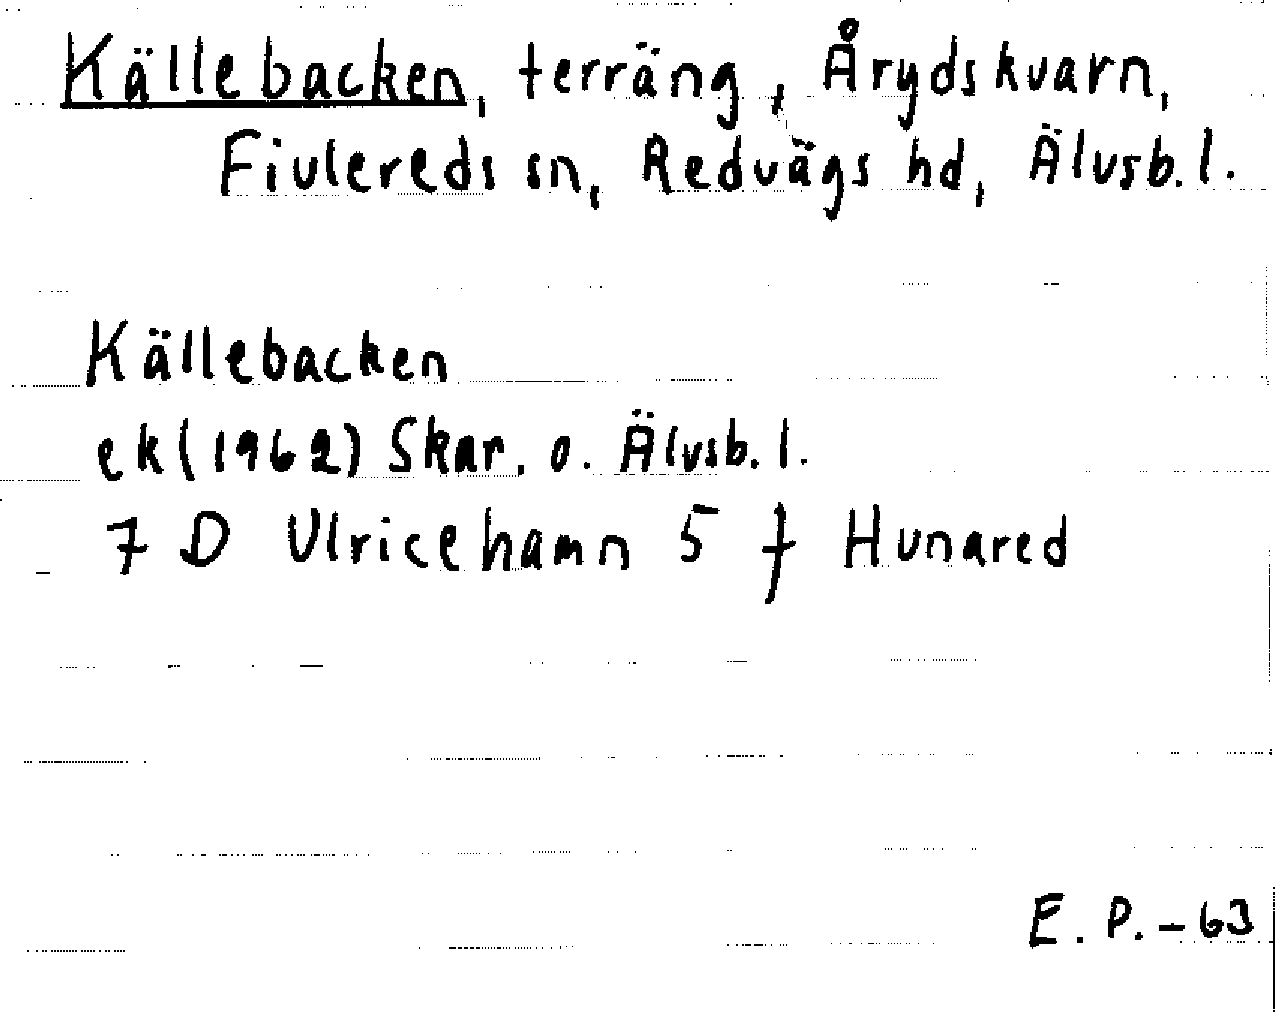 Källebacken, terräng, Årydskvarn,
Fivlereds sn, Redvägs hd, Älvsb. l.
Källebacken
ek (1962) Skar. o. Älvsb. l.
7 D Ulricehamn 5 f Hunared
E. P. - 63